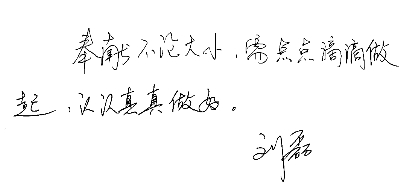 奉献不论大小，需点点滴滴做
起，认认真真做好。
刘磊